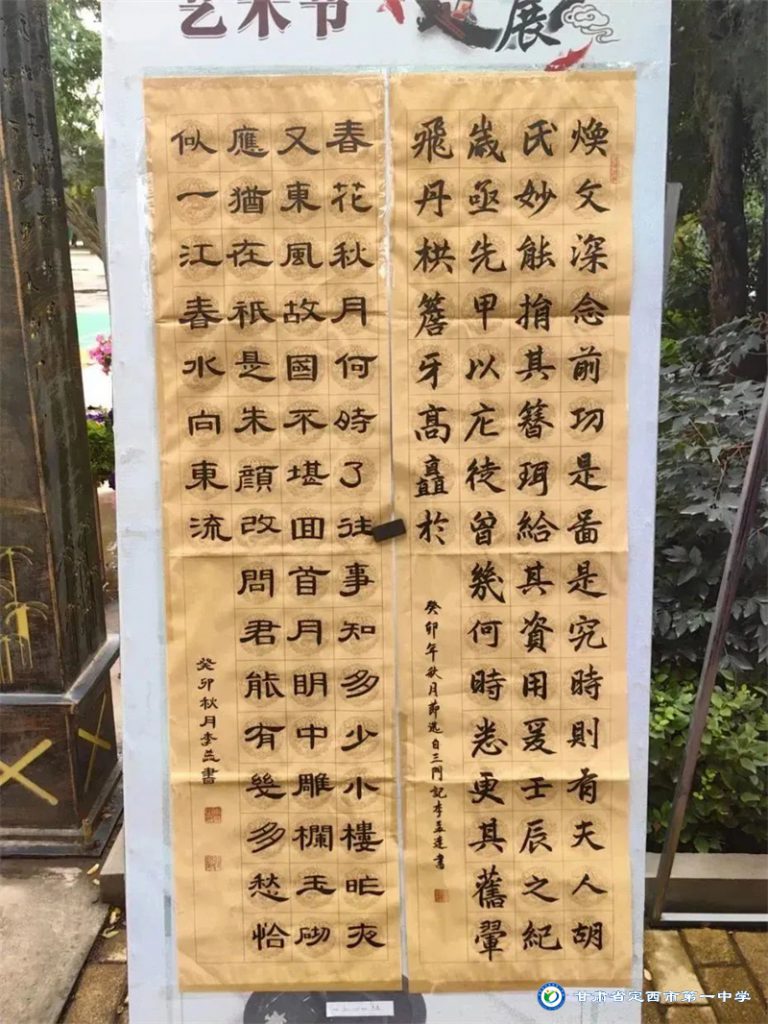 艺术节
展
煥文深念前功是啚是究時則有夫人胡
氏妙能捐其簪珥給其資用爰壬辰之紀
歲亟先甲以庀徒曾幾何時悉更其舊翬
飛丹栱簷牙高矗於
癸卯年秋月節选自三門記李書
春花秋月何時了往事知多少小樓昨夜
又東風故國不堪回首月眀中雕欄玉砌
應猶在祇是朱顏改問君能有幾多愁恰
似一江春水向東流
癸卯秋月李益書
甘肃省定西市第一中学